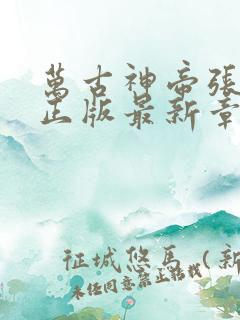 萬古神帝張
正版最新章
征城悠馬（新
未经同意禁止转载